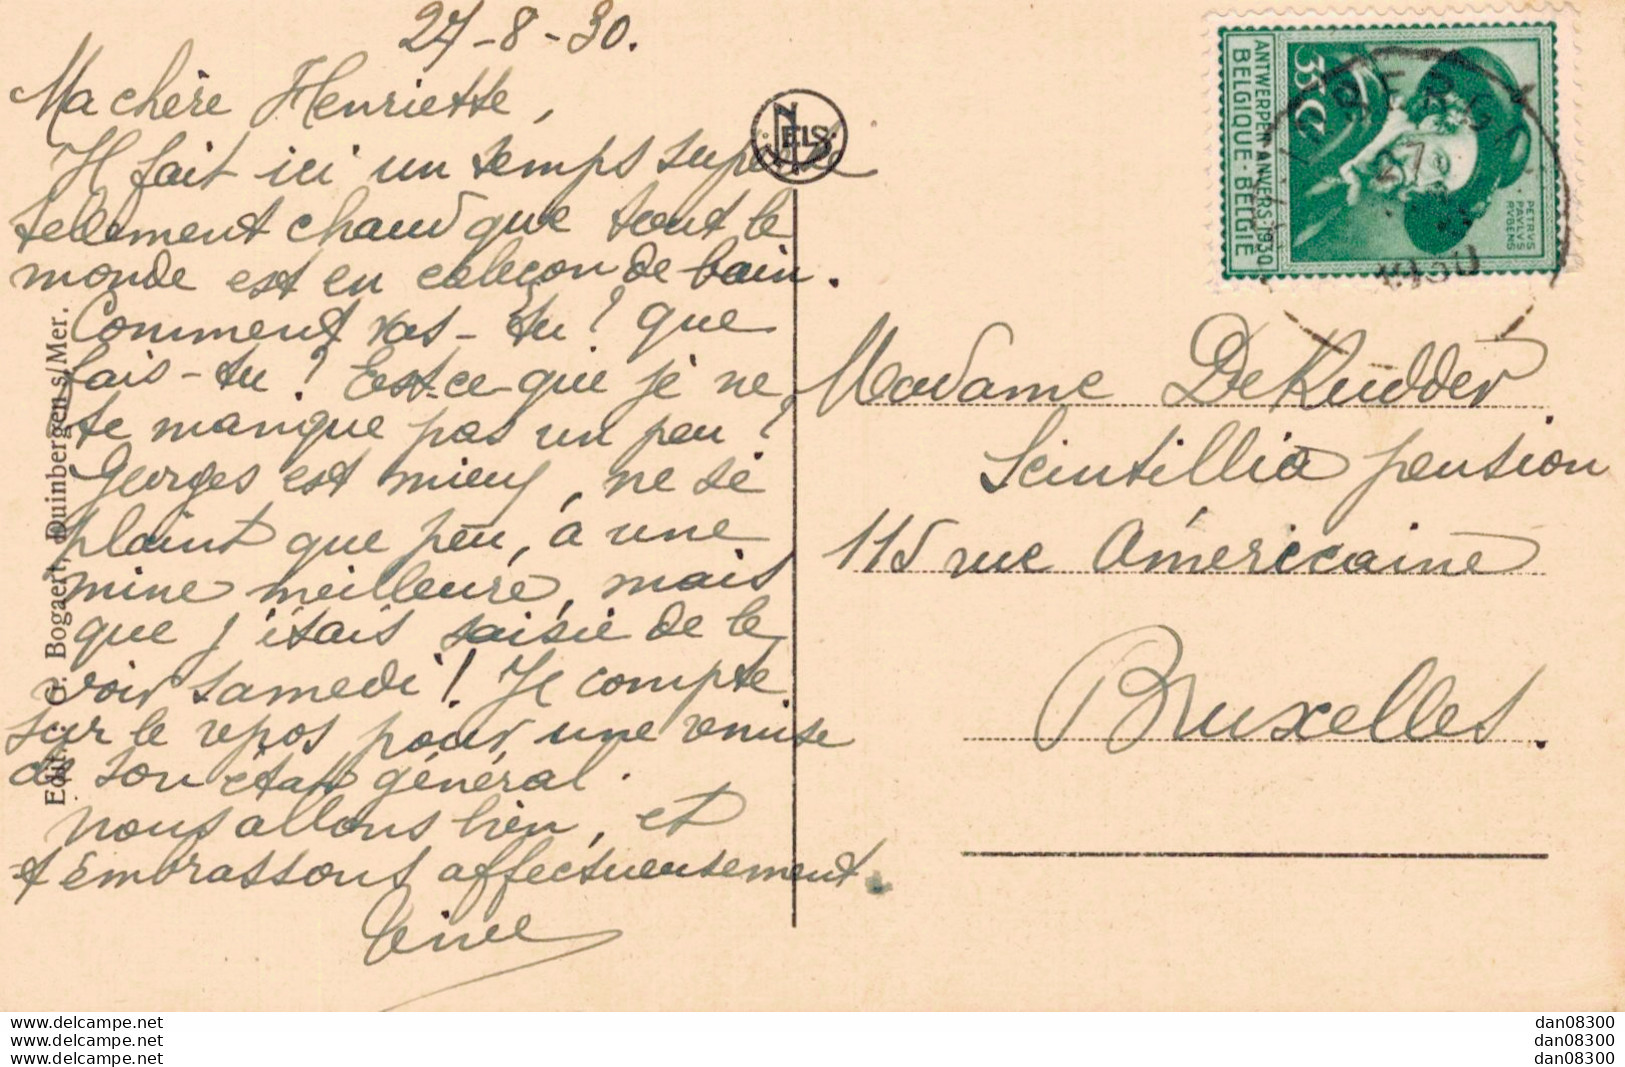 27-8-30.
Ma chère Henriette,
Il fait ici un temps superbe
tellement chaud que tout le
monde est en caleçon de bain.
Comment vas-tu? que
fais-tu? Est-ce-que je ne
te manque pas un peu?
Georges est mieux, ne se
plaint que peu, a une
mine meilleure, mais
que j'étais saisie de le
voir samedi! Je compte
sur le repos pour une remise
de son état général.
Nous allons bien, et
t'embrassons affectueusement.
NELS
Edit.: G. Bogaert, Duinbergen s/Mer.
ANTWERPEN·ANVERS·1930
BELGIQUE·BELGIË
35 C
PETRVS
PAVLVS
RVBENS
27
1930
Madame De Rudder
Scintillia pension
115 rue Américaine
Bruxelles.
www.delcampe.net
www.delcampe.net
www.delcampe.net
dan08300
dan08300
dan08300